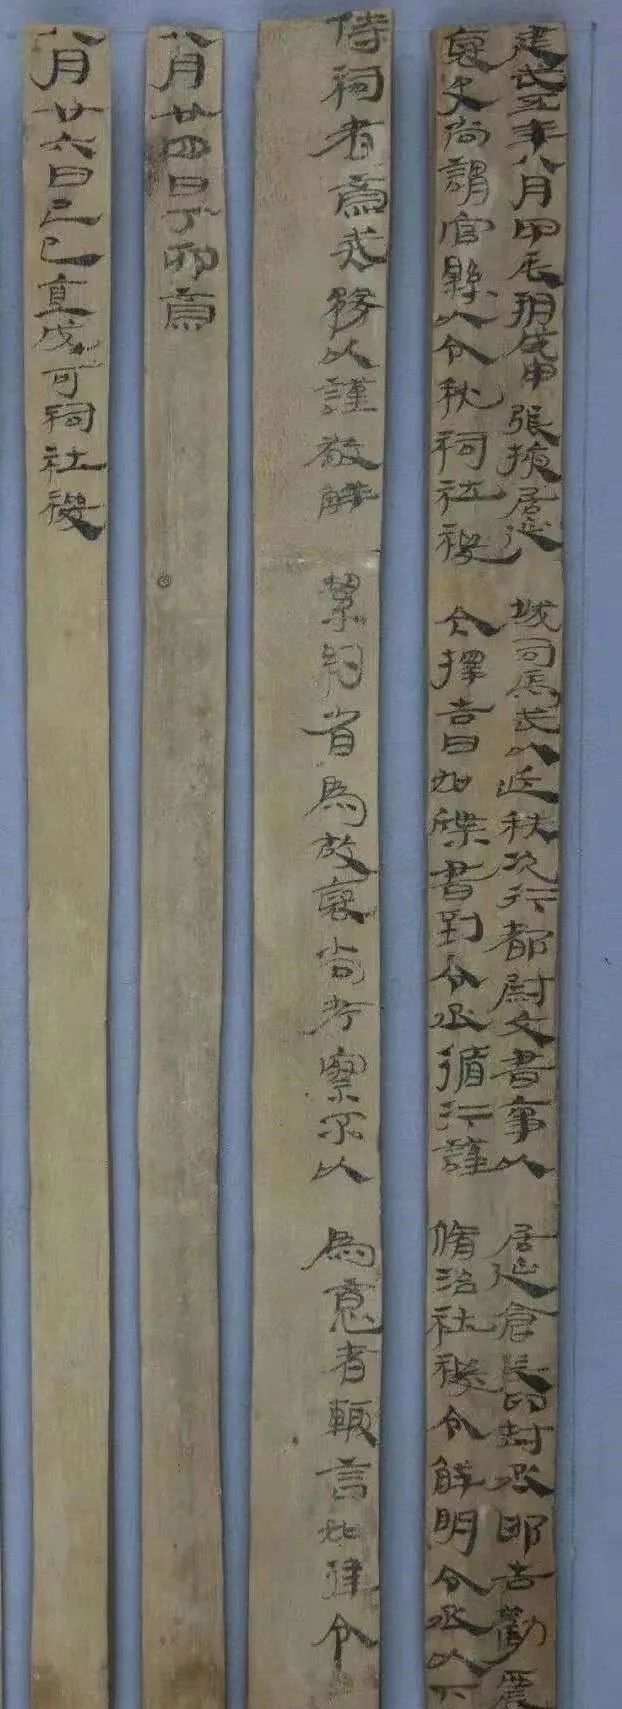 建武五年八月甲辰朔戊申張掖居延城司馬武以近秩次行都尉文書事以居延倉長印封丞邯告勸農
掾史尚謂官縣以令秋祠社稷今擇吉日如牒書到令丞循行謹脩治社稷令鮮明令丞以下
侍祠者齋戒務以謹敬鮮絜約省為故褒尚考察不以為意者輒言如律令
八月廿四日丁卯齋
八月廿六日己巳直成可祠社稷